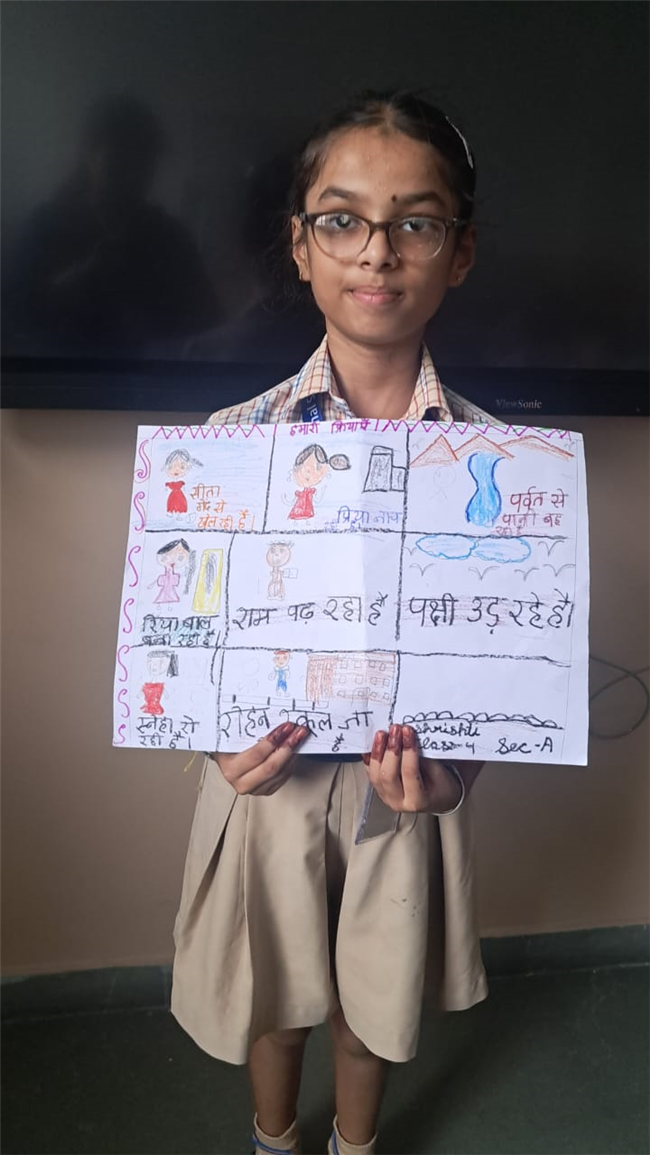 ViewSonic
हमारी क्रियाएँ
सीता
गेंद से
खेल रही है।
प्रिया नाच
पर्वत से
पानी बह
रिया बाल
बना रही है
राम पढ़ रहा है
पक्षी उड़ रहे है।
स्नेहा रो
रही है।
रोहन स्कूल जा
है
Shrishti
Class-4 Sec-A